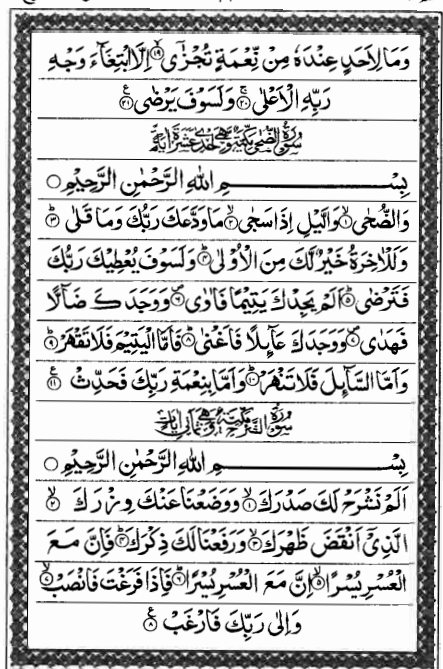 وَمَا لِاَحَدٍ عِنْدَهٗ مِنْ نِّعْمَةٍ تُجْزٰٓى ﴿۱۹﴾ اِلَّا ابْتِغَآءَ وَجْهِ
رَبِّهِ الْاَعْلٰى ﴿۲۰﴾ وَلَسَوْفَ يَرْضٰى ﴿۲۱﴾
سُوْرَةُ الضُّحٰى مَكِّيَّةٌ وَّهِيَ اِحْدٰى عَشَرَةَ اٰيَةً
بِسْمِ اللهِ الرَّحْمٰنِ الرَّحِيْمِ
وَالضُّحٰى ﴿۱﴾ وَالَّيْلِ اِذَا سَجٰى ﴿۲﴾ مَا وَدَّعَكَ رَبُّكَ وَمَا قَلٰى ﴿۳﴾
وَلَلْاٰخِرَةُ خَيْرٌ لَّكَ مِنَ الْاُوْلٰى ﴿۴﴾ وَلَسَوْفَ يُعْطِيْكَ رَبُّكَ
فَتَرْضٰى ﴿۵﴾ اَلَمْ يَجِدْكَ يَتِيْمًا فَاٰوٰى ﴿۶﴾ وَوَجَدَكَ ضَآلًّا
فَهَدٰى ﴿۷﴾ وَوَجَدَكَ عَآئِلًا فَاَغْنٰى ﴿۸﴾ فَاَمَّا الْيَتِيْمَ فَلَا تَقْهَرْ ﴿۹﴾
وَاَمَّا السَّآئِلَ فَلَا تَنْهَرْ ﴿۱۰﴾ وَاَمَّا بِنِعْمَةِ رَبِّكَ فَحَدِّثْ ﴿۱۱﴾
بِسْمِ اللهِ الرَّحْمٰنِ الرَّحِيْمِ
اَلَمْ نَشْرَحْ لَكَ صَدْرَكَ ﴿۱﴾ وَوَضَعْنَا عَنْكَ وِزْرَكَ ﴿۲﴾
الَّذِيْٓ اَنْقَضَ ظَهْرَكَ ﴿۳﴾ وَرَفَعْنَا لَكَ ذِكْرَكَ ﴿۴﴾ فَاِنَّ مَعَ
الْعُسْرِ يُسْرًا ﴿۵﴾ اِنَّ مَعَ الْعُسْرِ يُسْرًا ﴿۶﴾ فَاِذَا فَرَغْتَ فَانْصَبْ ﴿۷﴾
وَاِلٰى رَبِّكَ فَارْغَبْ ﴿۸﴾